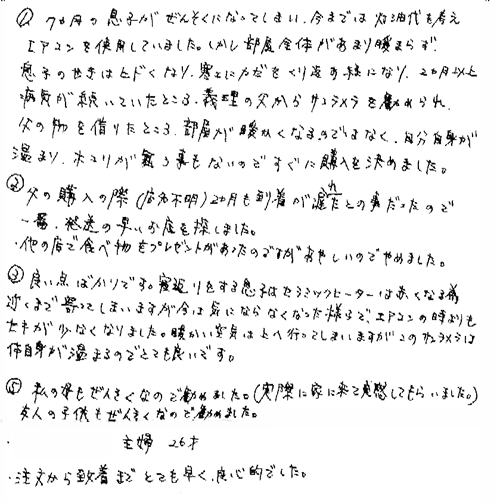 ① 7ヵ月の息子がぜんそくになってしまい、今までは灯油代も考え
エアコンを使用していました。しかし部屋全体があまり暖まらず、
息子のせきはひどくなり、寒さにカゼをくり返す様になり、2ヵ月以上
病気が続いていたところ、義理の父からサンラメラを勧められ、
父の物を借りたところ、部屋が暖かくなるのではなく、自分自身が
温まり、ホコリが舞う事もないのですぐに購入を決めました。
② 父の購入の際(店名不明)2ヵ月も到着が遅れたとの事だったので
一番、発送の早いお店を探しました。
・他の店で食べ物をプレゼントがあったのですがあやしいのでやめました。
③ 良い点ばかりです。寝返りをする息子はセラミックヒーターは赤くなる為
近くまで寄ってしまいますが今は気にならなくなった様子で、エアコンの時よりも
セキが少なくなりました。暖かい空気は上へ行ってしまいますがこのサンラメラは
体自身が温まるのでとても良いです。
⑤ 私の母もぜんそくなので勧めました。(実際に家に来て実感してもらいました。)
友人の子供もぜんそくなので勧めました。
・ 主婦 26才
・注文から到着までとても早く、良心的でした。